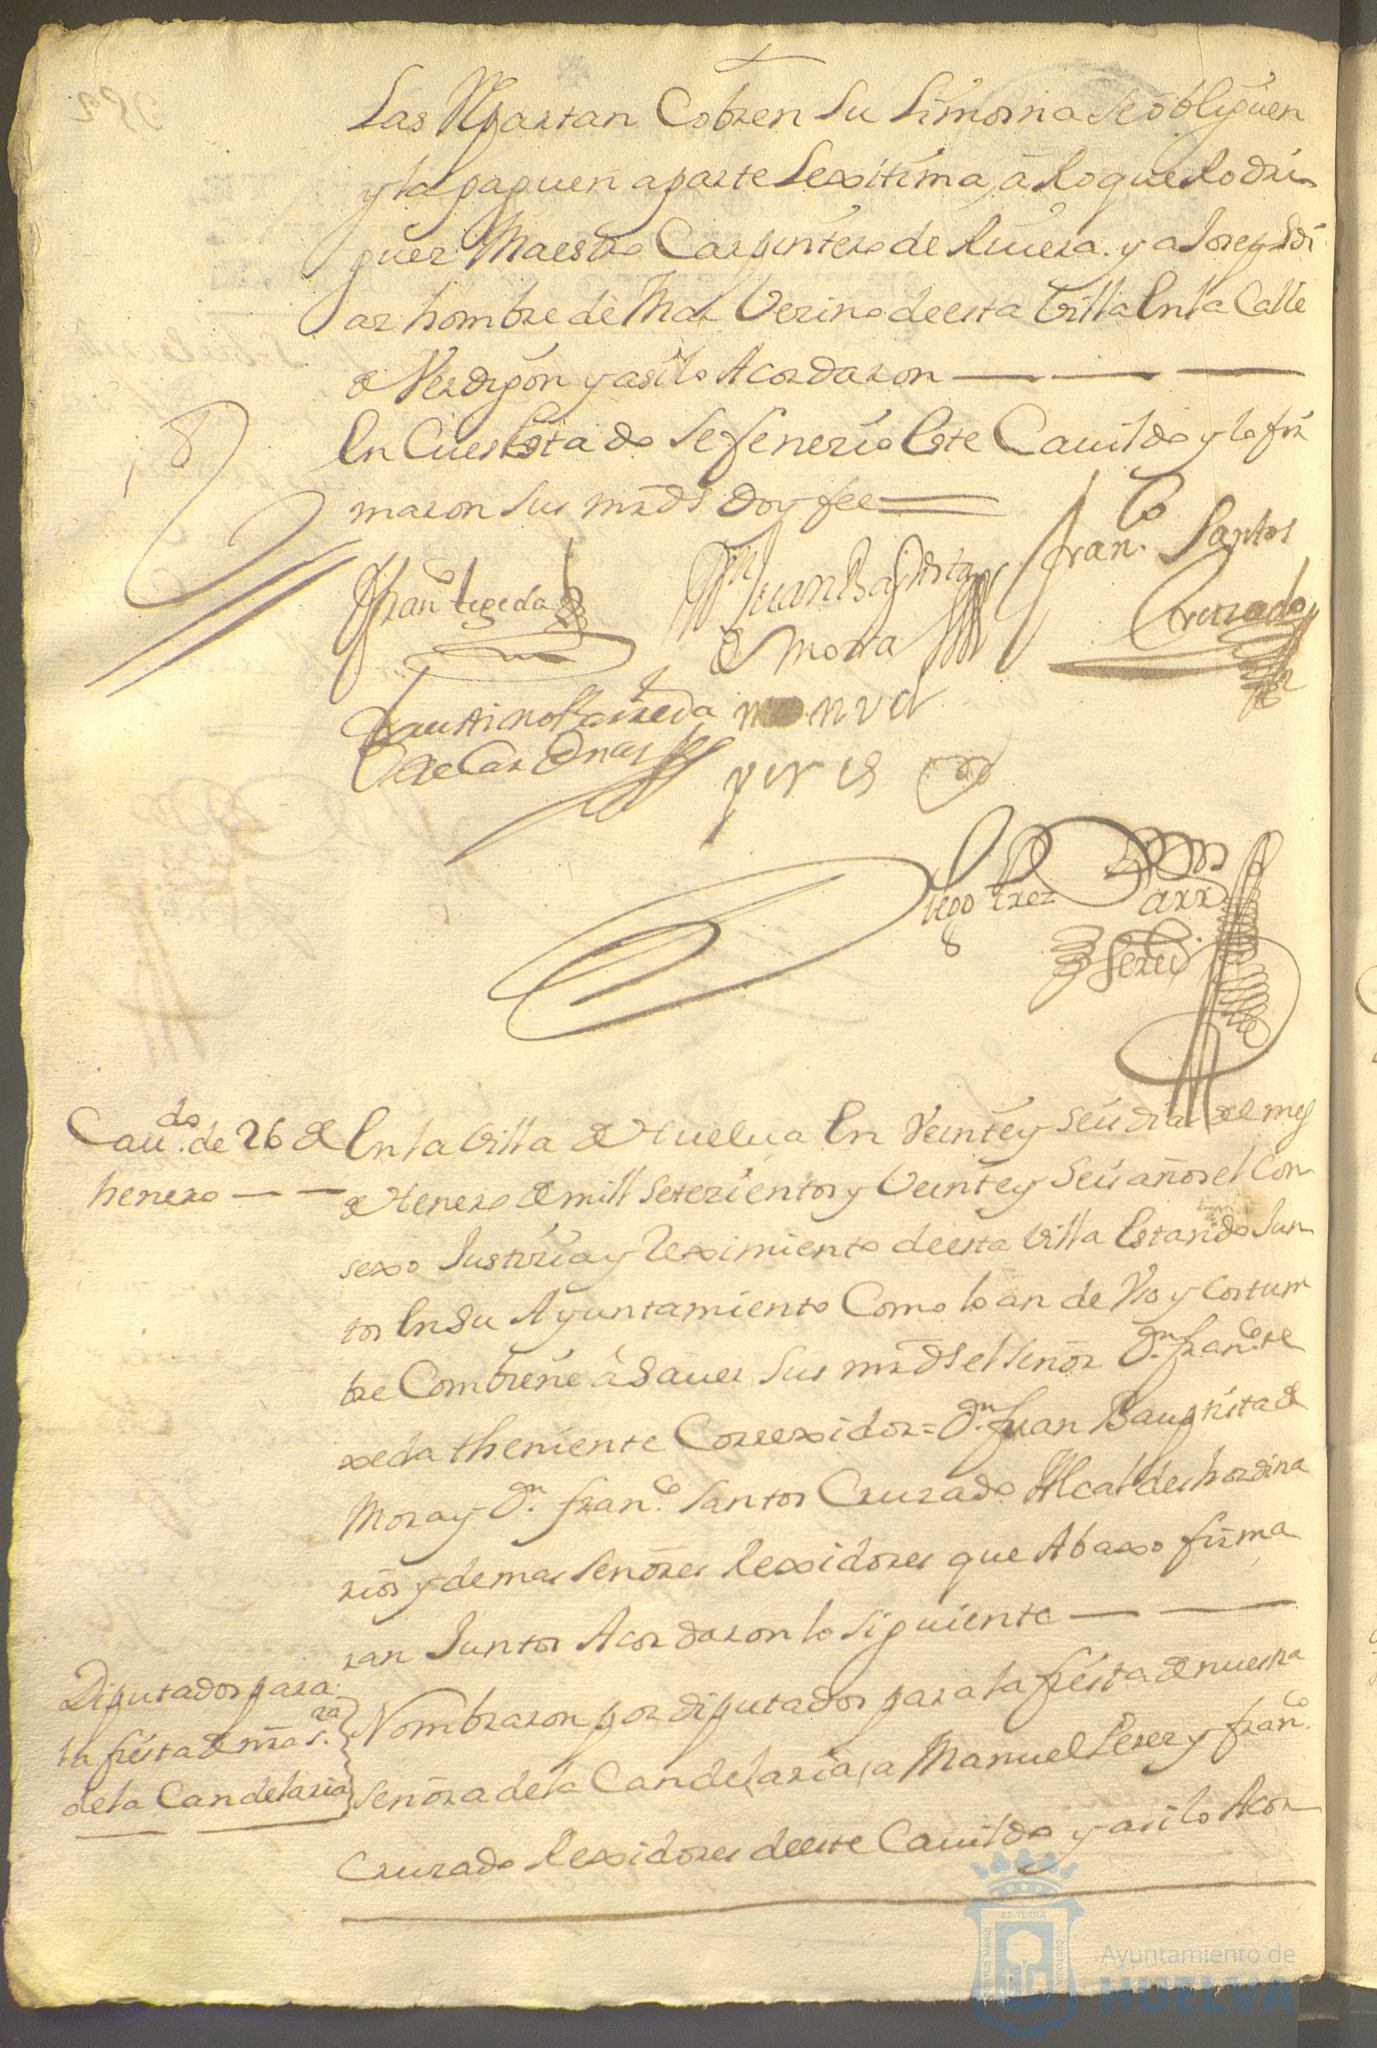 las Repartan Cobren su limosna se obliguen
y la paguen a parte Lexitima, a Roque Rodri
guez Maestro Carpintero de Riuera. y a Joseph Di
az hombre de Mar Vezino de esta Villa En la Calle
de Verdigon y asi lo Acordaron
En Cuest Estado se fenezio Este Cauildo y lo fir
maron sus mrds doy fee
Fran.co tegeda
Juan Baptista
de Mora
Fran.co Santos
Cruzado
Faustino Castañeda
de Cardenas
manuel
peres
Diego
Cau.do de 26 de
henero
En la Villa de Huelua En Veinte y seis dias del mes
de Henero de mill setezientos y Veinte y seis años el Con
sexo Justizia y Reximiento de esta Villa Estando Jun
tos En su Ayuntamiento Como lo an de Vso y Costum
bre Combiene a sauer sus mrds el señor D.n Fran.co te
xeda theniente Correxidor = D.n Juan Bauptista de
Mora y D.n Fran.co Santos Cruzado Alcaldes hordina
rios y demas señores Rexidores que Abaxo firma
ran Juntos Acordaron lo siguiente
Diputados para
la fiesta de nra s.ra
de la Candelaria
Nombraron por diputados para la fiesta de nuestra
señora de la Candelaria, a Manuel Perez y Fran.co
Cruzado Rexidores de este Cauildo y asi lo Acor
Ayuntamiento de
HUELVA